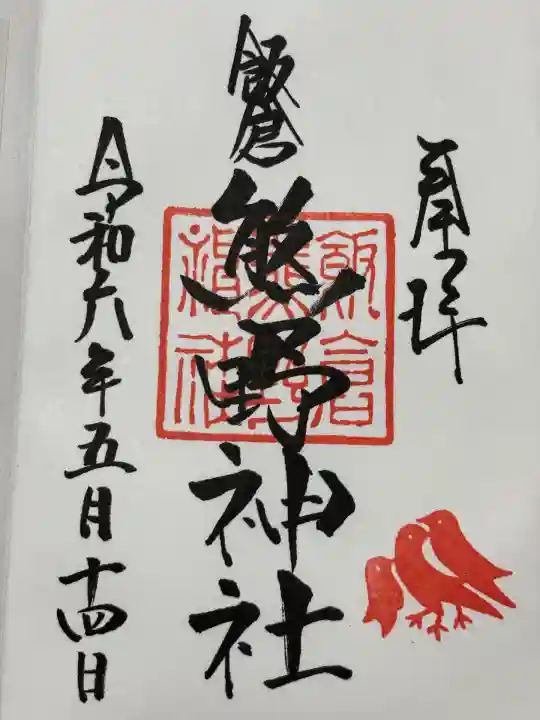 奉拝
飯倉
熊野神社
飯倉
熊野
神社
令和六年五月十四日